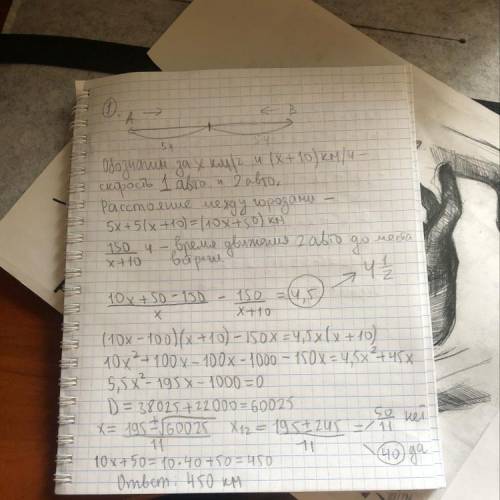 ①.
A → ← B
5ч 5ч
Обозначим за x км/ч и (x+10) км/ч –
скорость 1 авто и 2 авто.
Расстояние между городами –
5x+5(x+10)=(10x+50) км
150/(x+10) ч – время движения 2 авто до места
встречи
(10x+50-150)/x - 150/(x+10) = 4,5 → 4 1/2
(10x-100)(x+10)-150x=4,5x(x+10)
10x²+100x-100x-1000-150x=4,5x²+45x
5,5x²-195x-1000=0
D=38025+22000=60025
x=(195±√60025)/11 x₁₂=(195±245)/11 = 50/11 ней
40 да
10x+50=10·40+50=450
Ответ: 450 км